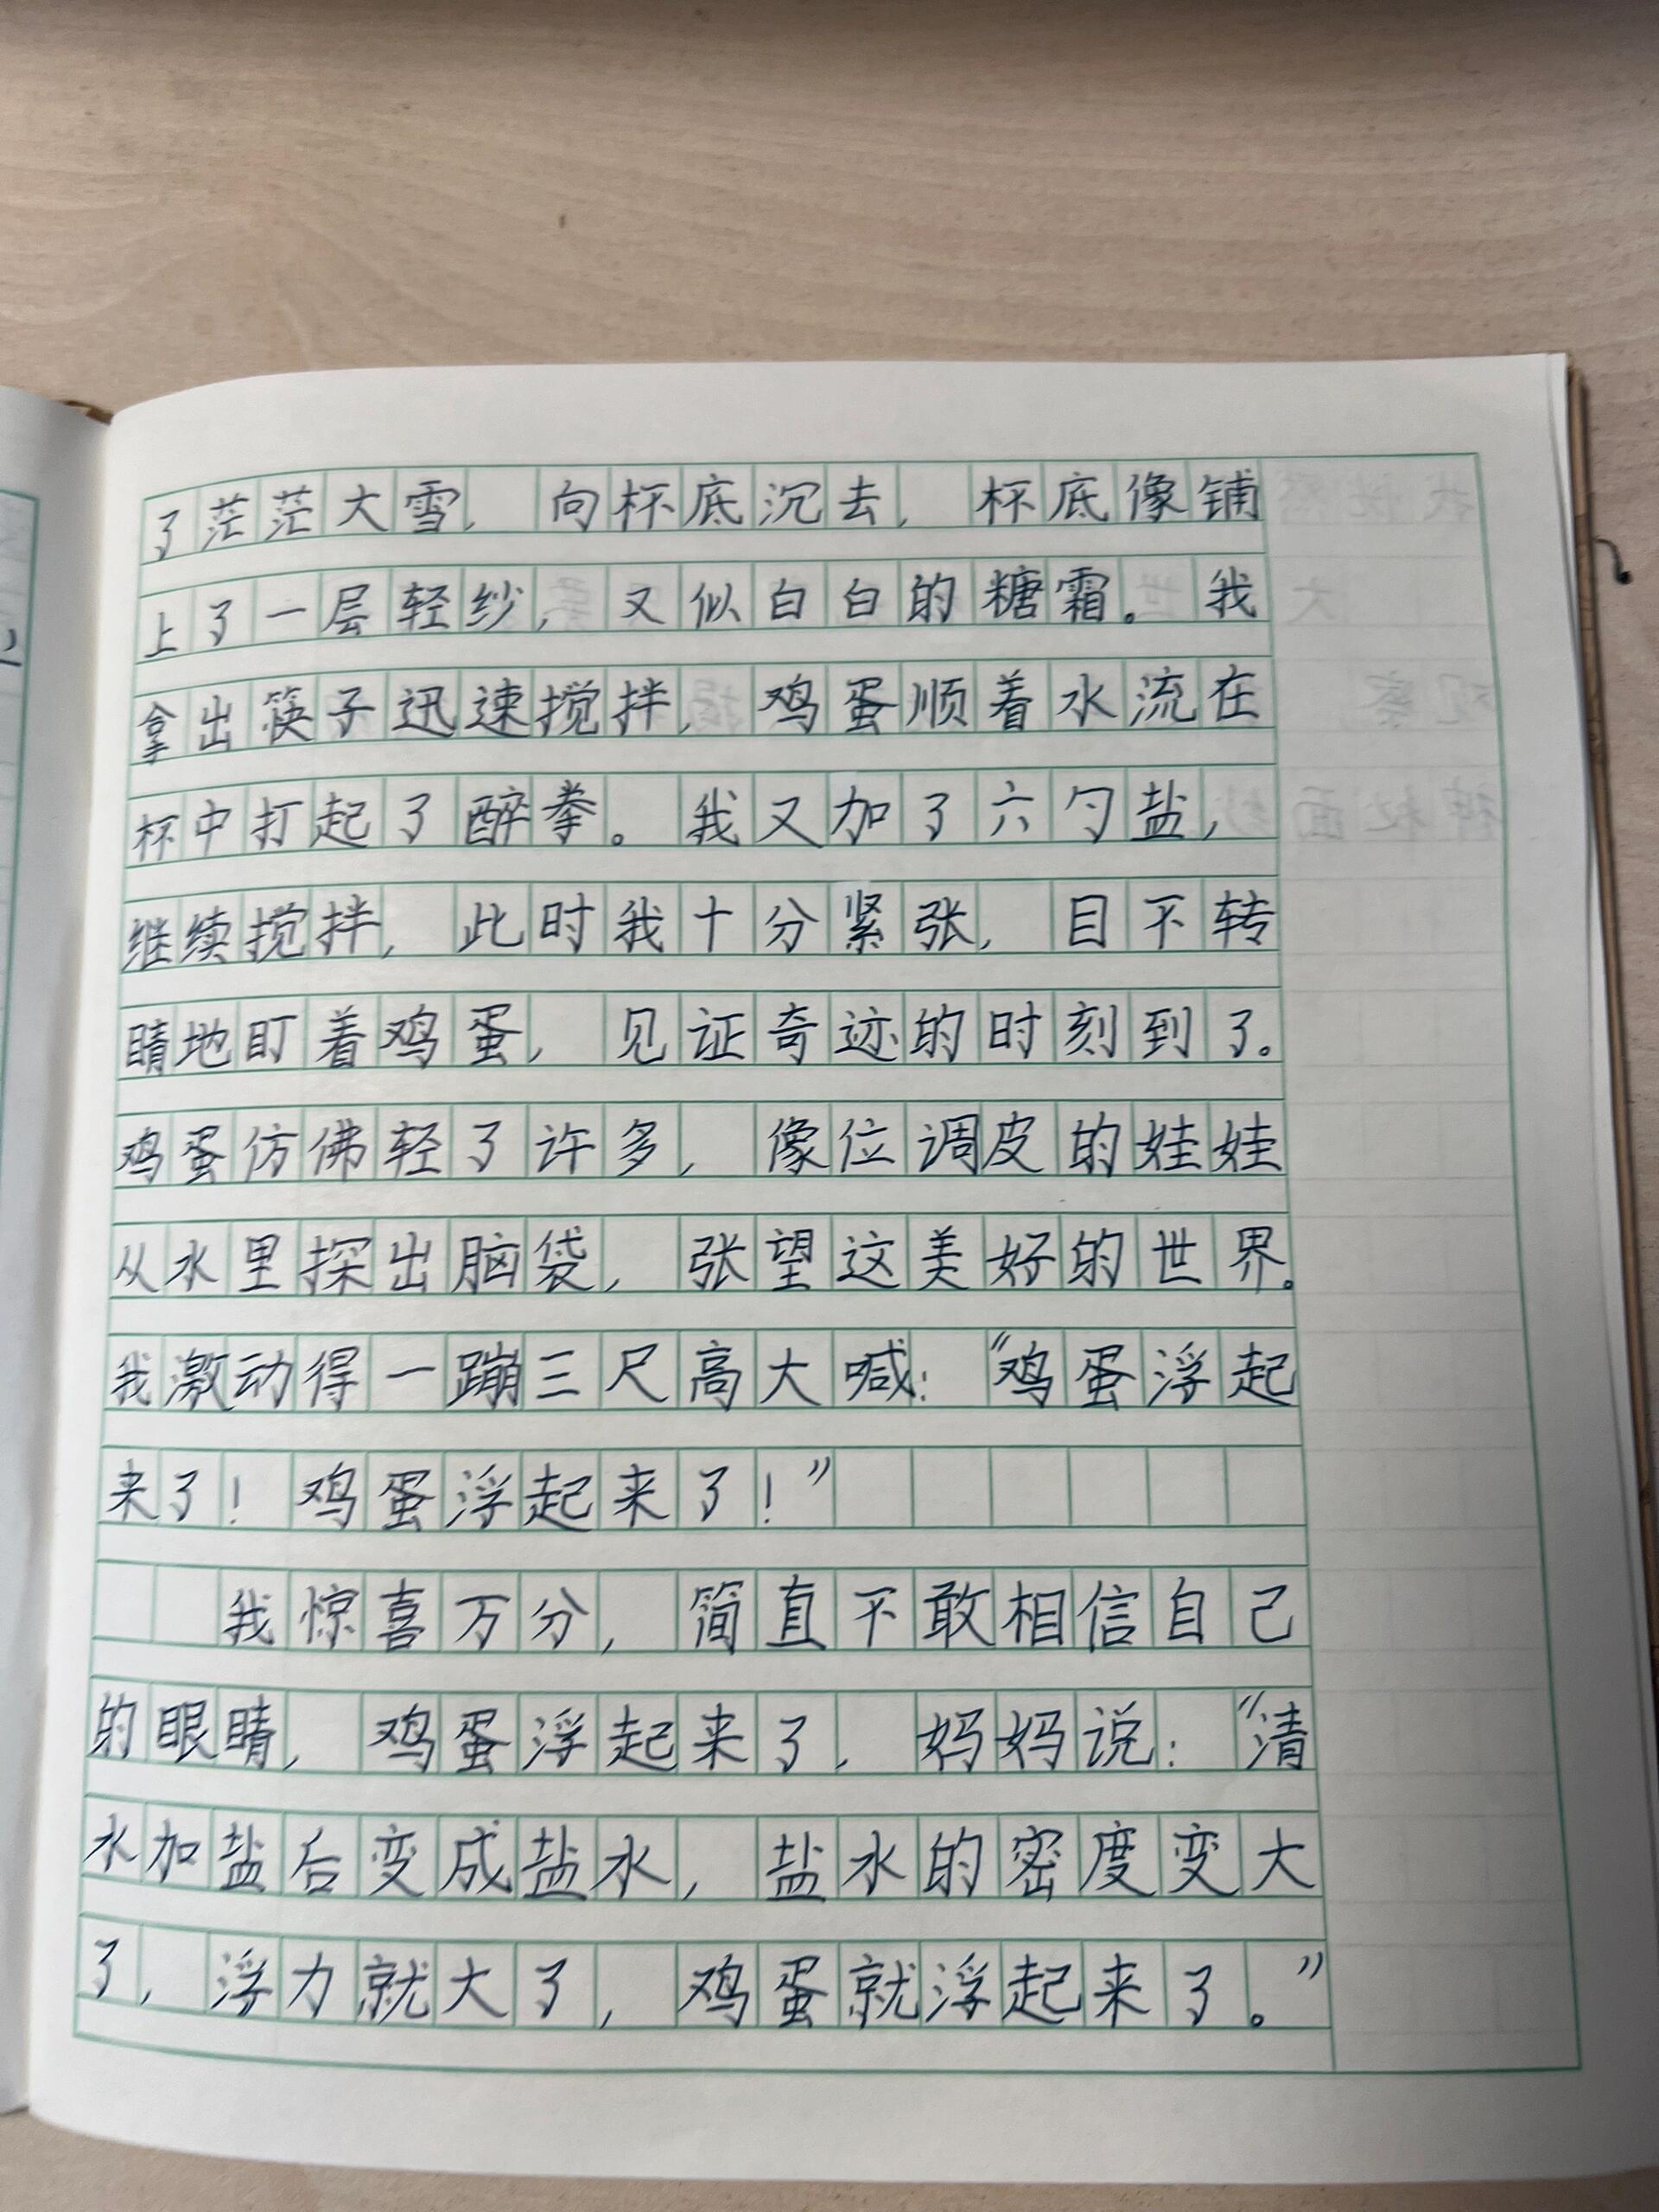 了茫茫大雪，向杯底沉去，杯底像铺
上了一层轻纱，又似白白的糖霜。我
拿出筷子迅速搅拌，鸡蛋顺着水流在
杯中打起了醉拳。我又加了六勺盐，
继续搅拌，此时我十分紧张，目不转
睛地盯着鸡蛋，见证奇迹的时刻到了。
鸡蛋仿佛轻了许多，像位调皮的娃娃
从水里探出脑袋，张望这美好的世界。
我激动得一蹦三尺高大喊：“鸡蛋浮起
来了！鸡蛋浮起来了！”
我惊喜万分，简直不敢相信自己
的眼睛，鸡蛋浮起来了，妈妈说：“清
水加盐后变成盐水，盐水的密度变大
了，浮力就大了，鸡蛋就浮起来了。”